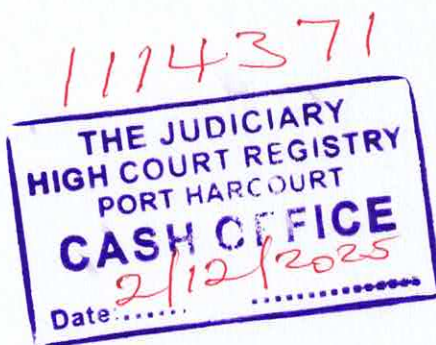 1114371
THE JUDICIARY
HIGH COURT REGISTRY
PORT HARCOURT
CASH OFFICE
Date:......2/12/2025..............